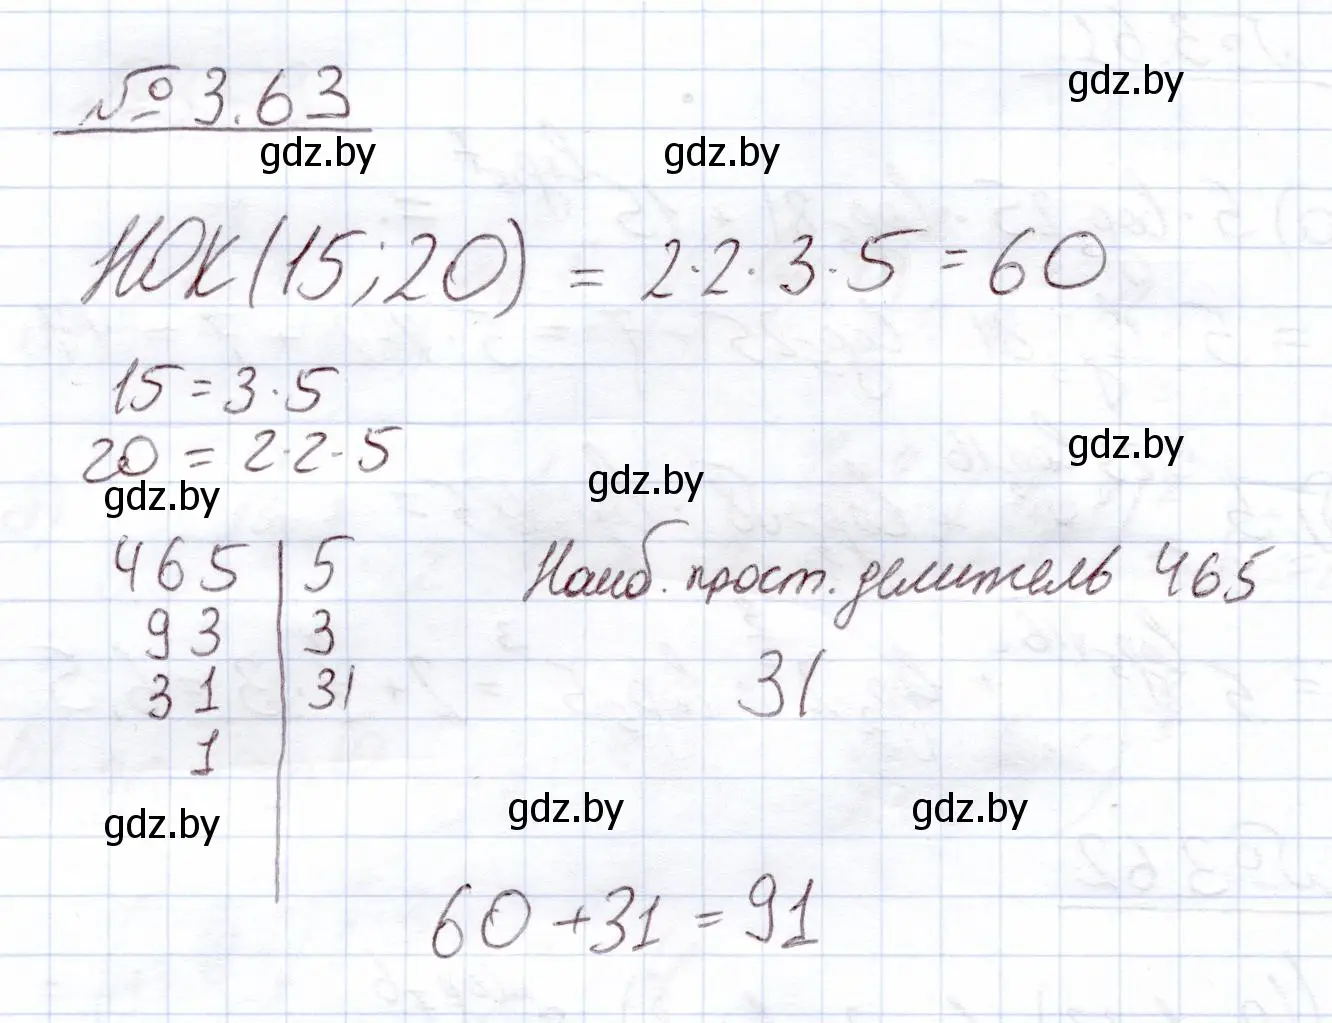 № 3.63
gdz.by
gdz.by gdz.by
НОК(15;20) = 2·2·3·5 = 60
15 = 3·5
20 = 2·2·5
gdz.by
gdz.by gdz.by
465 | 5
93 | 3
31 | 31
1
Наиб. прост. делитель 465
31
gdz.by gdz.by gdz.by
60 + 31 = 91